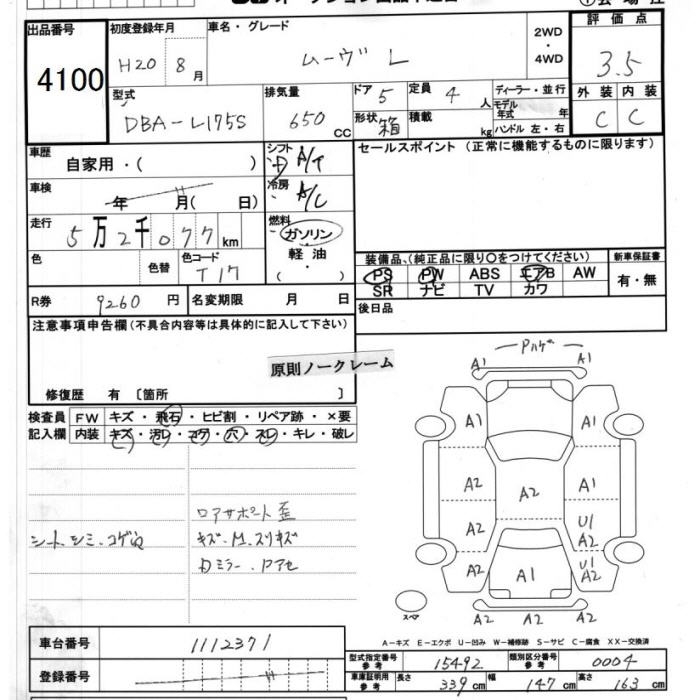 出品番号 4100
初度登録年月 H20 8月
車名・グレード ムーヴ L
2WD・4WD
評価点 3.5
外装 C 内装 C
型式 DBA-L175S
排気量 650 CC
ドア 5 定員 4 人
形状 箱 積載 kg
ディーラー・並行
モデル年式 年
ハンドル 左・右
車歴 自家用・( )
シフト A/T
セールスポイント (正常に機能するものに限ります)
車検 年 月( 日)
冷房 A/C
走行 5万2千077km
燃料 ガソリン・軽油・( )
色 色替 色コード T17
装備品、(純正品に限り○をつけてください)
新車保証書
PS PW ABS エアB AW 有・無
SR ナビ TV カワ
R券 9260円 名変期限 月 日
後日品
注意事項申告欄(不具合内容等は具体的に記入して下さい)
原則ノークレーム
修復歴 有 〔箇所 〕
検査員 FW キズ・飛石・ヒビ割・リペア跡・×要
記入欄 内装 キズ・汚レ・コゲ・穴・スレ・キレ・破レ
シート、シミ、コゲ穴
ロアサポート歪
キズ、M、スリキズ
Pハゲ
A1 A1
A1 A1
A2 A2 A1
A2 U1 A2
A2 A1 U1 A2
スペア
A2 A2 A2
A-キズ E-エクボ U-凹み W-補修跡 S-サビ C-腐食 XX-交換済
車台番号 1112371
型式指定番号 参考 15492 類別区分番号 参考 0004
登録番号
車庫証明用 参考 長さ 339cm 幅 147cm 高さ 163cm